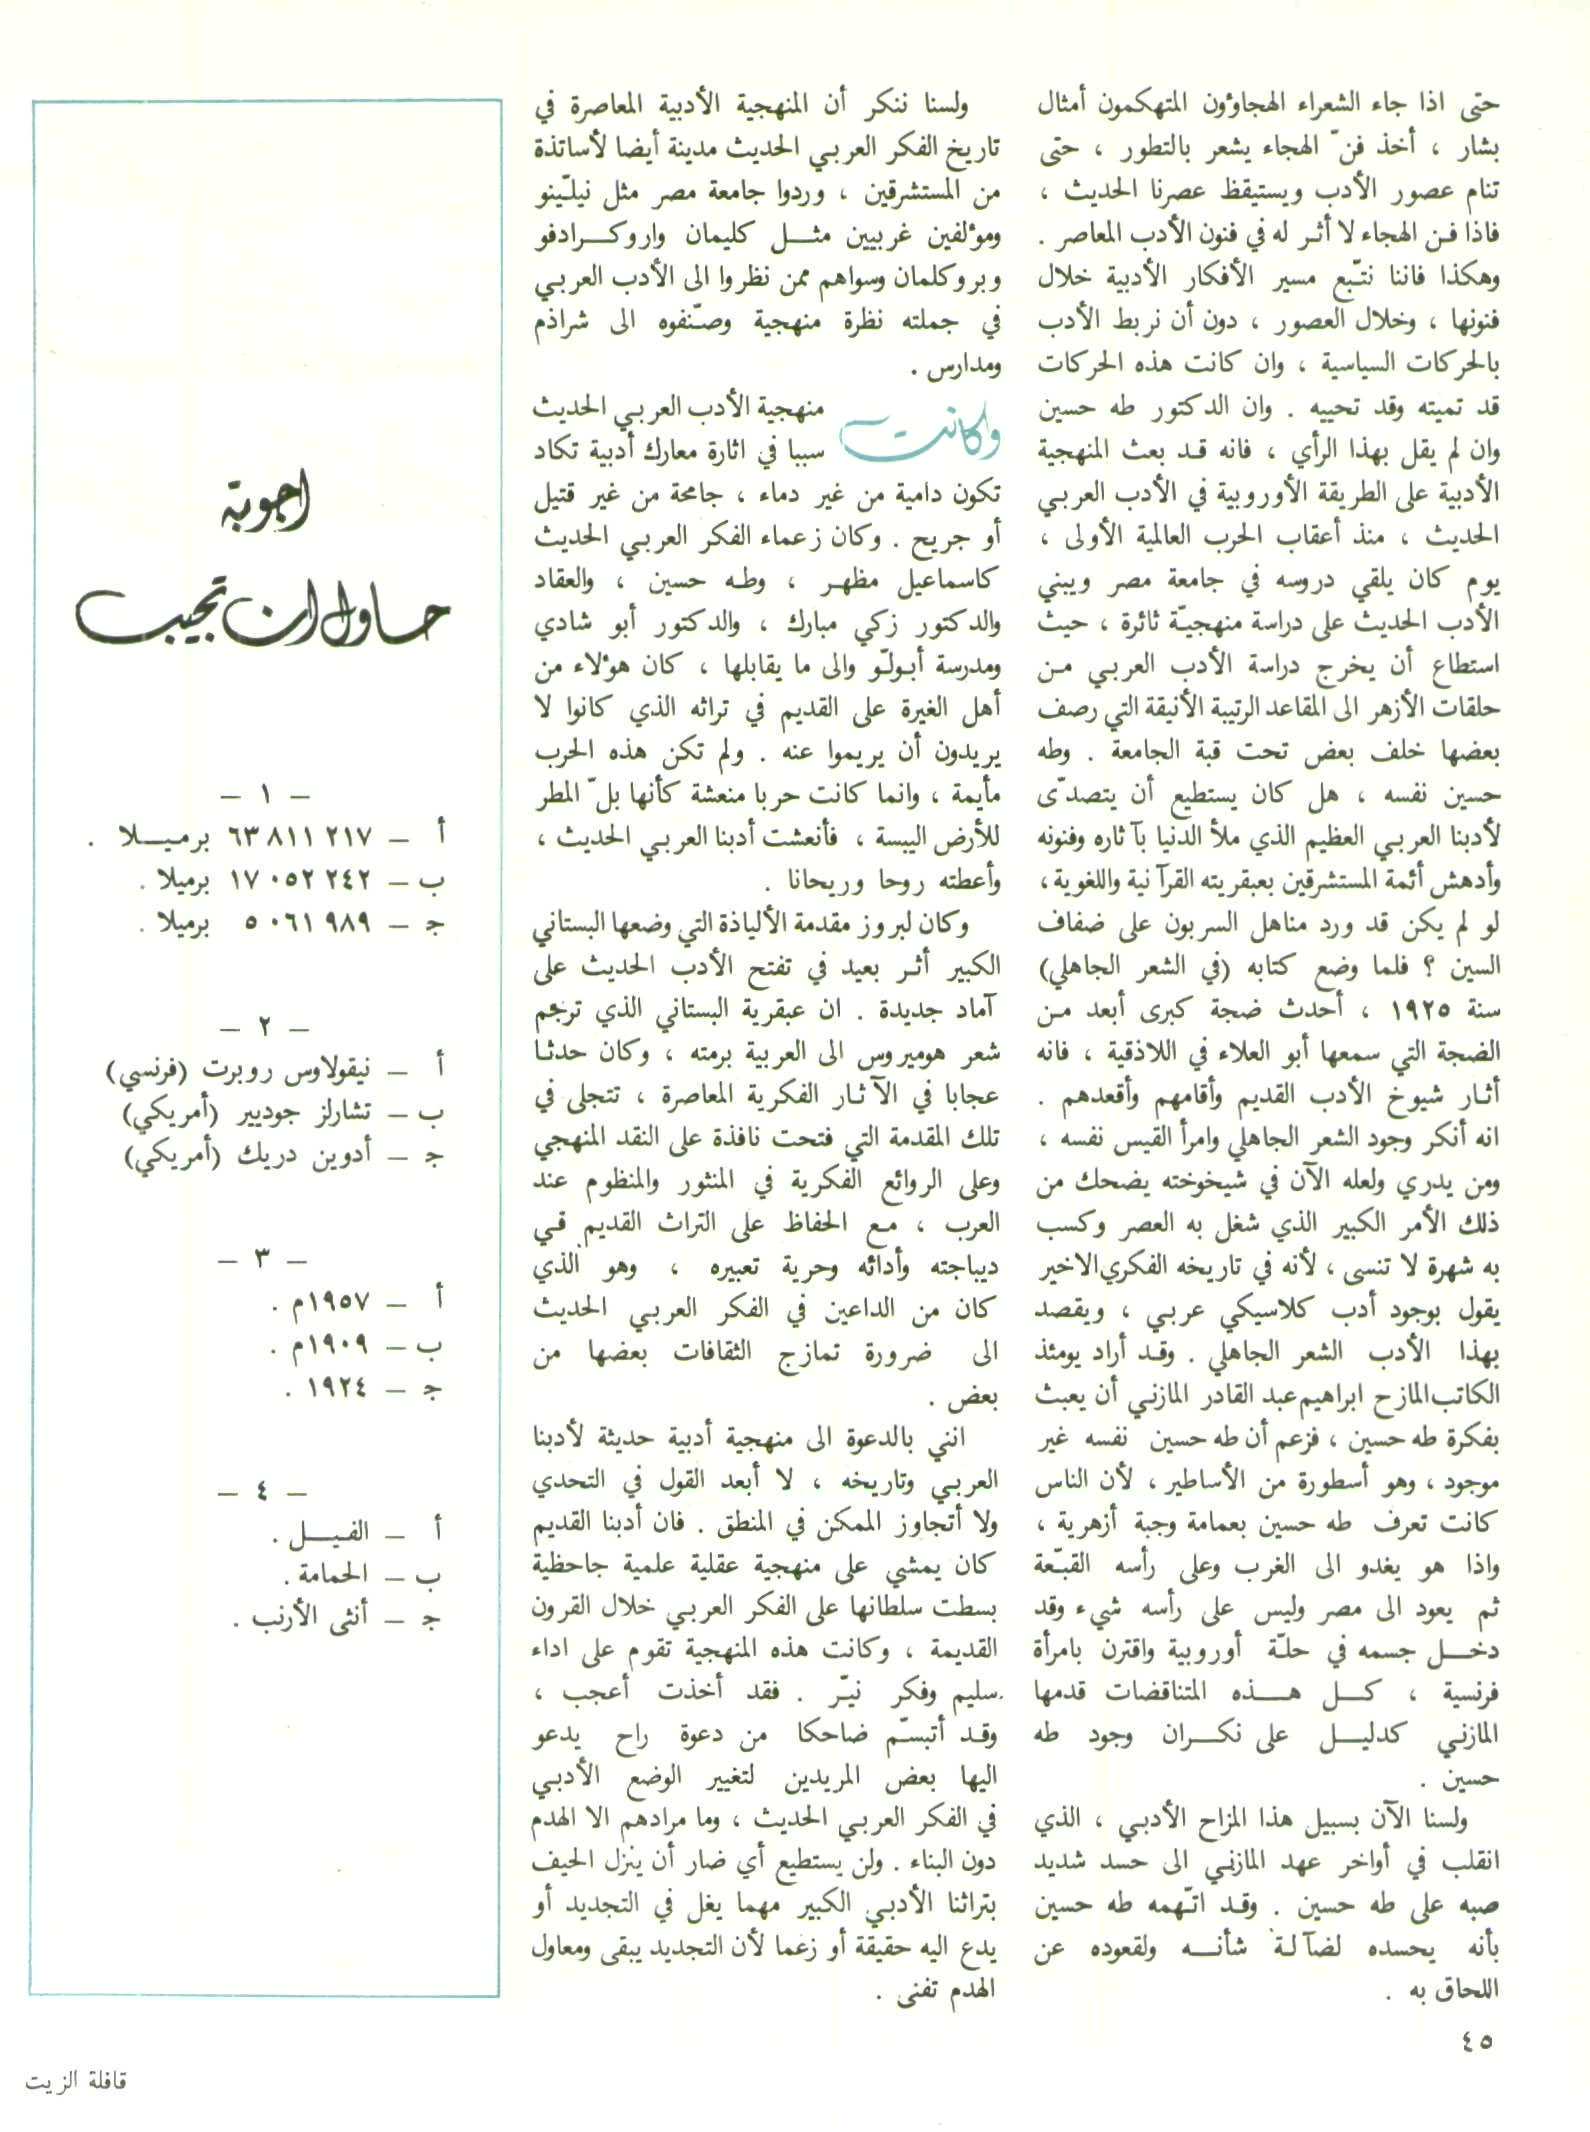 حتى اذا جاء الشعراء الهجاوٴون المتهكمون أمثال
بشار ، أخذ فنّ الهجاء يشعر بالتطور ، حتى
تنام عصور الأدب ويستيقظ عصرنا الحديث ،
فاذا فن الهجاء لا أثر له في فنون الأدب المعاصر .
وهكذا فاننا نتّبع مسير الأفكار الأدبية خلال
فنونها ، وخلال العصور ، دون أن نربط الأدب
بالحركات السياسية ، وان كانت هذه الحركات
قد تميته وقد تحييه . وان الدكتور طه حسين
وان لم يقل بهذا الرأي ، فانه قد بعث المنهجية
الأدبية على الطريقة الأوروبية في الأدب العربي
الحديث ، منذ أعقاب الحرب العالمية الأولى ،
يوم كان يلقي دروسه في جامعة مصر ويبني
الأدب الحديث على دراسة منهجيّة ثائرة ، حيث
استطاع أن يخرج دراسة الأدب العربي من
حلقات الأزهر الى المقاعد الرتيبة الأنيقة التي رصف
بعضها خلف بعض تحت قبة الجامعة . وطه
حسين نفسه ، هل كان يستطيع أن يتصدّى
لأدبنا العربي العظيم الذي ملأ الدنيا بآثاره وفنونه
وأدهش أئمة المستشرقين بعبقريته القرآنية واللغوية،
لو لم يكن قد ورد مناهل السربون على ضفاف
السين ؟ فلما وضع كتابه (في الشعر الجاهلي)
سنة ١٩٢٥ ، أحدث ضجة كبرى أبعد من
الضجة التي سمعها أبو العلاء في اللاذقية ، فانه
أثار شيوخ الأدب القديم وأقامهم وأقعدهم .
انه أنكر وجود الشعر الجاهلي وامرأ القيس نفسه ،
ومن يدري ولعله الآن في شيخوخته يضحك من
ذلك الأمر الكبير الذي شغل به العصر وكسب
به شهرة لا تنسى ، لأنه في تاريخه الفكري الاخير
يقول بوجود أدب كلاسيكي عربي ، ويقصد
بهذا الأدب الشعر الجاهلي . وقد أراد يومئذ
الكاتب المازح ابراهيم عبد القادر المازني أن يعبث
بفكرة طه حسين ، فزعم أن طه حسين نفسه غير
موجود ، وهو أسطورة من الأساطير ، لأن الناس
كانت تعرف طه حسين بعمامة وجبة أزهرية ،
واذا هو يغدو الى الغرب وعلى رأسه القبّعة
ثم يعود الى مصر وليس على رأسه شيء وقد
دخل جسمه في حلّة أوروبية واقترن بامرأة
فرنسية ، كل هذه المتناقضات قدمها
المازني كدليل على نكران وجود طه
حسين .
ولسنا الآن بسبيل هذا المزاح الأدبي ، الذي
انقلب في أواخر عهد المازني الى حسد شديد
صبه على طه حسين . وقد اتّهمه طه حسين
بأنه يحسده لضآلة شأنه ولقعوده عن
اللحاق به .
ولسنا ننكر أن المنهجية الأدبية المعاصرة في
تاريخ الفكر العربي الحديث مدينة أيضا لأساتذة
من المستشرقين ، وردوا جامعة مصر مثل نيلّينو
وموٴلفين غربيين مثل كليمان واروكرادفو
وبروكلمان وسواهم ممن نظروا الى الأدب العربي
في جملته نظرة منهجية وصنّفوه الى شراذم
ومدارس .
وكانت منهجية الأدب العربي الحديث
سببا في اثارة معارك أدبية تكاد
تكون دامية من غير دماء ، جامحة من غير قتيل
أو جريح . وكان زعماء الفكر العربي الحديث
كاسماعيل مظهر ، وطه حسين ، والعقاد
والدكتور زكي مبارك ، والدكتور أبو شادي
ومدرسة أبولّو والى ما يقابلها ، كان هوٴلاء من
أهل الغيرة على القديم في تراثه الذي كانوا لا
يريدون أن يريموا عنه . ولم تكن هذه الحرب
مأيمة ، وانما كانت حربا منعشة كأنها بلّ المطر
للأرض اليبسة ، فأنعشت أدبنا العربي الحديث ،
وأعطته روحا وريحانا .
وكان لبروز مقدمة الألياذة التي وضعها البستاني
الكبير أثر بعيد في تفتح الأدب الحديث على
آماد جديدة . ان عبقرية البستاني الذي ترجم
شعر هوميروس الى العربية برمته ، وكان حدثا
عجابا في الآثار الفكرية المعاصرة ، تتجلى في
تلك المقدمة التي فتحت نافذة على النقد المنهجي
وعلى الروائع الفكرية في المنثور والمنظوم عند
العرب ، مع الحفاظ على التراث القديم في
ديباجته وأدائه وحرية تعبيره ، وهو الذي
كان من الداعين في الفكر العربي الحديث
الى ضرورة تمازج الثقافات بعضها من
بعض .
انني بالدعوة الى منهجية أدبية حديثة لأدبنا
العربي وتاريخه ، لا أبعد القول في التحدي
ولا أتجاوز الممكن في المنطق . فان أدبنا القديم
كان يمشي على منهجية عقلية علمية جاحظية
بسطت سلطانها على الفكر العربي خلال القرون
القديمة ، وكانت هذه المنهجية تقوم على اداء
سليم وفكر نيّر . فقد أخذت أعجب ،
وقد أتبسّم ضاحكا من دعوة راح يدعو
اليها بعض المريدين لتغيير الوضع الأدبي
في الفكر العربي الحديث ، وما مرادهم الا الهدم
دون البناء . ولن يستطيع أي ضار أن ينزل الحيف
بتراثنا الأدبي الكبير مهما يغل في التجديد أو
يدع اليه حقيقة أو زعما لأن التجديد يبقى ومعاول
الهدم تفنى .
اجوبة
حاول ان تجيب
– ١ –
أ – ٦٣ ٨١١ ٢١٧ برميلا .
ب – ١٧ ٠٥٢ ٢٤٢ برميلا .
ج – ٥ ٠٦١ ٩٨٩ برميلا .
– ٢ –
أ – نيقولاوس روبرت (فرنسي)
ب – تشارلز جوديير (أمريكي)
ج – أدوين دريك (أمريكي)
– ٣ –
أ – ١٩٥٧م .
ب – ١٩٠٩م .
ج – ١٩٢٤ .
– ٤ –
أ – الفيل .
ب – الحمامة .
ج – أنثى الأرنب .
٤٥
قافلة الزيت